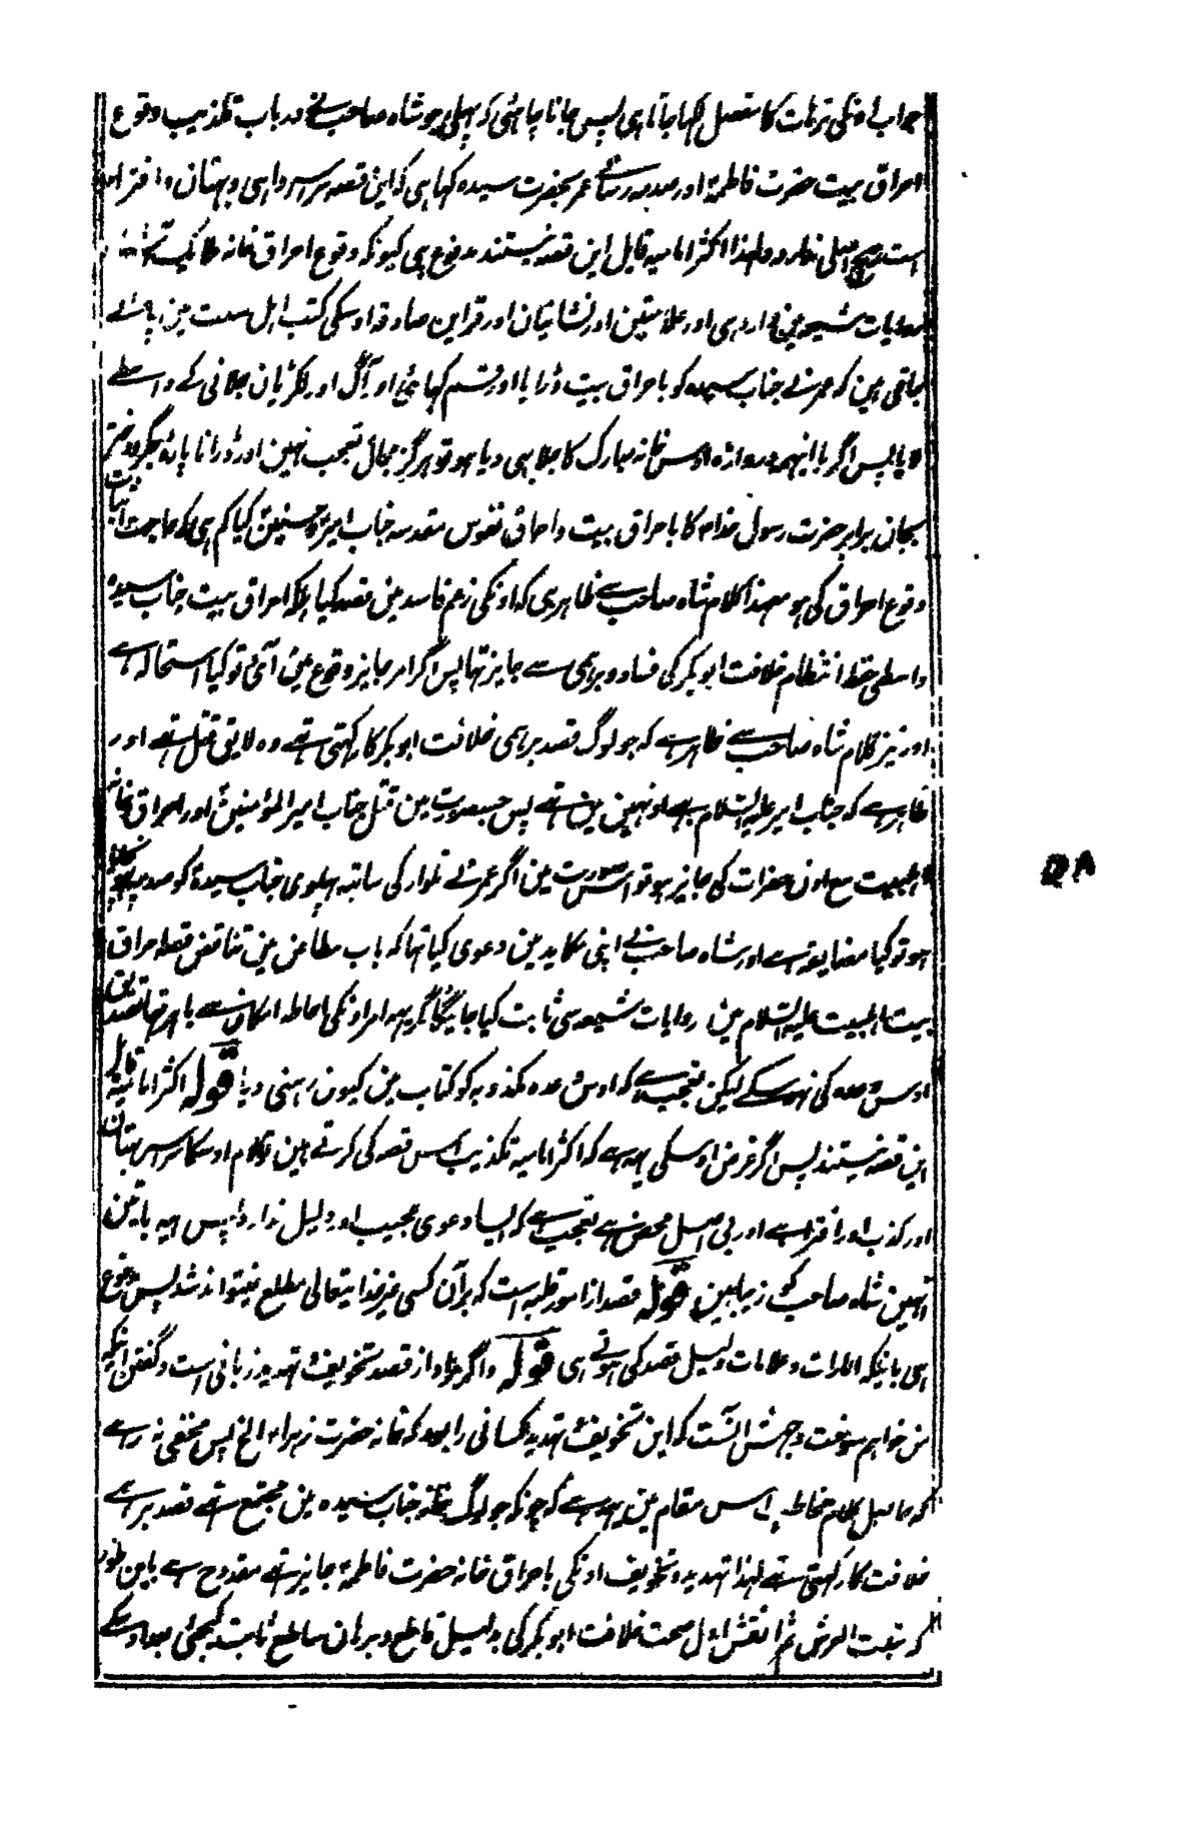 جواب اونکی ترہات کا مفصل لکہا جاتا ہی پس جاننا چاہئی کہ پہلی جو شاہ صاحب نے در باب تکذیب وقوع
احراق بیت حضرت فاطمہؑ اور صدمہ رسانے عمر بحضرت سیدہ کہا ہی کہ این قصہ سراسر واہی و بہتان و افترا
است ہیچ اصلی ندارد ولہذا اکثر امامیہ قایل این قصہ نیستند مدفوع ہی کیونکہ وقوع احراق خانہ ملائک
روایات شیعہ مین وارد ہی اور علامتین اور نشانیان اور قراین صادقہ اوسکی کتب اہل سنت مین پائے
جاتی ہین کہ عمر نے جناب سیدہ کو باحراق بیت ڈرایا اور قسم کہائی اور آگ اور لکڑیان جلانی کے واسطے
لایا پس اگر با اینہمہ دروازہ اوس خانہ مبارک کا جلا بہی دیا ہو تو ہرگز مجال تعجب نہین اور ڈرانا پارۂ جگر
بجان برابر حضرت رسول خدا کا باحراق بیت و احراق نفوس مقدسہ جناب امیرؑ و حسنینؑ کیا کم ہی کہ حاجت اثبات
وقوع احراق کی ہو معہذا کلام شاہ صاحب سے ظاہر ہی کہ اونکی زعم فاسد مین قصد کیا بلکہ احراق بیت جناب سیدہ
واسطی حفظ انتظام خلافت ابوبکر کی فساد و برہمی سے جایز تہا پس اگر امر جایز وقوع مین آئی تو کیا استحالہ ہے
اور نیز کلام شاہ صاحب سے ظاہر ہے کہ جو لوگ قصد برہمی خلافت ابوبکر کا رکہتی تہے وہ لایق قتل تہے اور
ظاہر ہے کہ جناب امیر علیہ السلام بہی اونہین مین تہے پس جس صورت مین قتل جناب امیر المومنینؑ اور احراق خانہ
اہلبیت مع اون حضرات کی جایز ہو تو اس صورت مین اگر عمر نے تلوار کی ساتہہ پہلوی جناب سیدہؑ کو صدمہ
ہو تو کیا مضایقہ ہے اور شاہ صاحب نے اپنی مکاید مین دعوی کیا تہا کہ باب مطاعن مین تناقض قصہ احراق
بیت اہلبیت علیہم السلام مین روایات شیعہ سی ثابت کیا جائیگا مگر یہہ امر اونکی احاطہ امکان سے باہر تہا تصدیق
اوس وعدہ کی نہو سکے لیکن تعجب ہے کہ اوس وعدہ مکذوبہ کو کتاب مین کیون رہنی دیا قولہ اکثر امامیہ قایل
این قصہ نیستند پس اگر غرض اوسکی یہہ ہے کہ اکثر امامیہ تکذیب اس قصہ کی کرتے ہین تو کلام اوسکا سراسر بہتان
اور کذب اور افترا ہے اور بی اصل محض ہے تعجب ہے کہ ایسا دعوی عجیب اور دلیل ندارد پس یہہ باتین
انہین شاہ صاحب کو زیبا ہین قولہ قصد از امور قلبیہ است کہ بر آن کسی غیر خدایتعالی مطلع نمیتواند شد پس مدفوع
ہی باینکہ امارات و علامات دلیل قصد کی ہوتے ہی قولہ و اگر مراد از قصد تخویف و تہدید زبانی است و گفتن اینکہ
من خواہم سوخت وجہش آنست کہ این تخویف و تہدید کسانی را بود کہ خانہ حضرت زہرا الخ پس مخفی نہ رہے
کہ ماحصل کلام مخاطب اس مقام مین یہہ ہے کہ چونکہ جو لوگ خانہ جناب سیدہ مین مجتمع تہے قصد برہمی
خلافت کا رکہتی تہے لہذا تہدید و تخویف اونکی باحراق خانہ حضرت فاطمہؑ جایز تہے مقدوح ہے باین طور
کہ ثبت العرش ثم انقش اول صحت خلافت ابوبکر کی بدلیل قاطع و برہان ساطع ثابت کیجئی بعد اوسکے